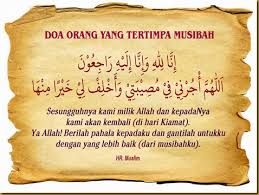 DOA ORANG YANG TERTIMPA MUSIBAH
إِنَّا لِلَّهِ وَإِنَّا إِلَيْهِ رَاجِعُوْنَ
اَللَّهُمَّ أْجُرْنِيْ فِيْ مُصِيْبَتِيْ وَأَخْلِفْ لِيْ خَيْرًا مِنْهَا
Sesungguhnya kami milik Allah dan kepadaNya
kami akan kembali (di hari Kiamat).
Ya Allah! Berilah pahala kepadaku dan gantilah untukku
dengan yang lebih baik (dari musibahku).
HR. Muslim